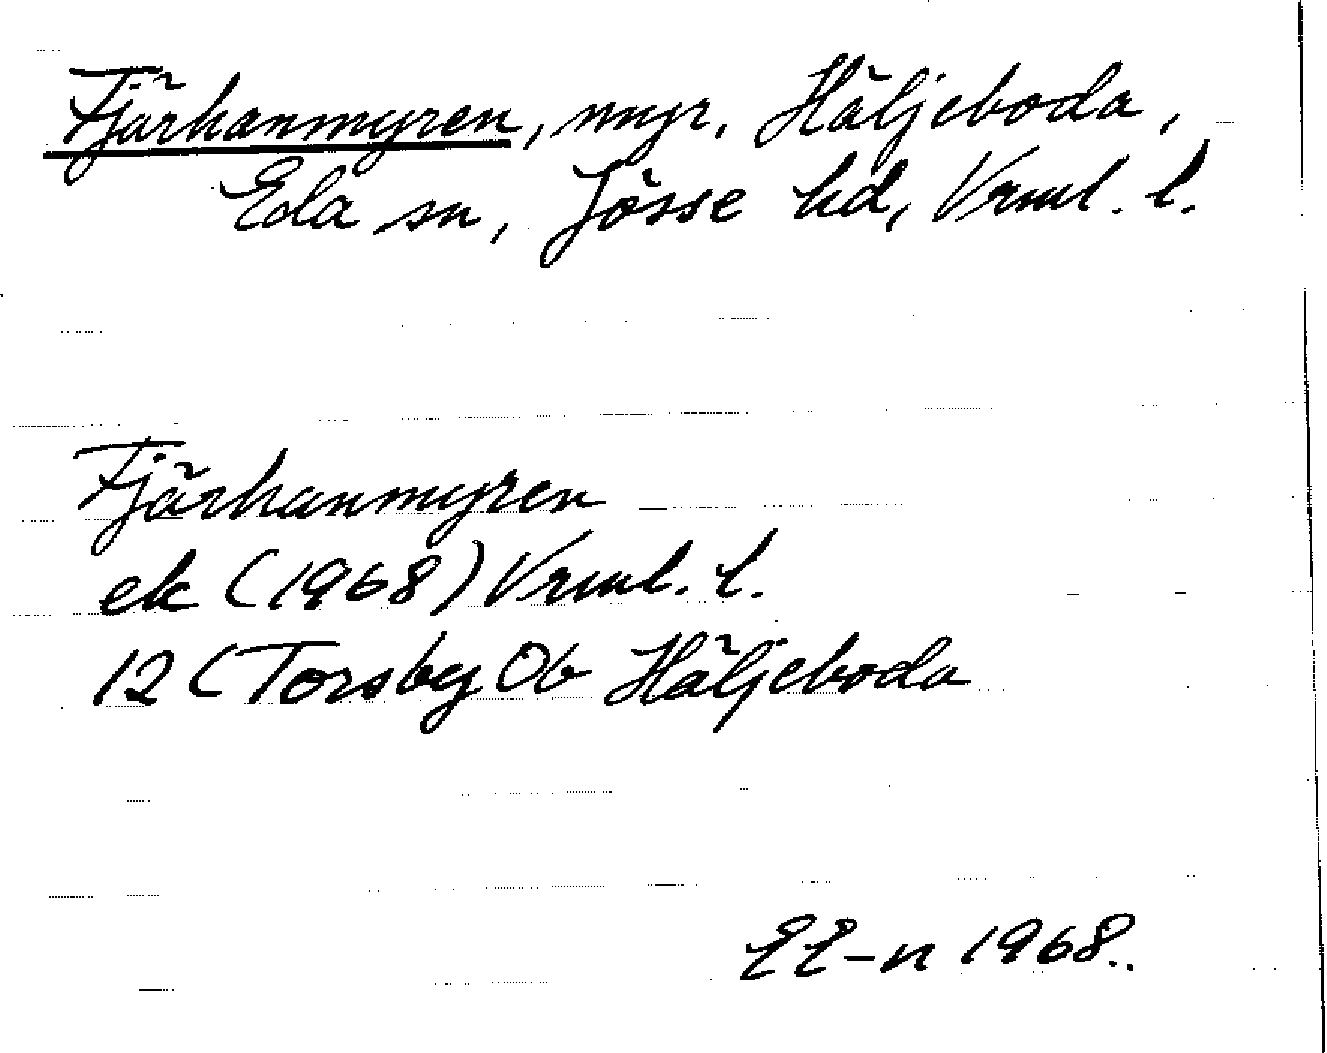 Fjärhanmyren, myr, Häljeboda,
Eda sn, Jösse hd, Vrml. l.
Fjärhanmyren
ek (1968) Vrml. l.
12 C Torsby Ob Häljeboda
EE-n 1968.